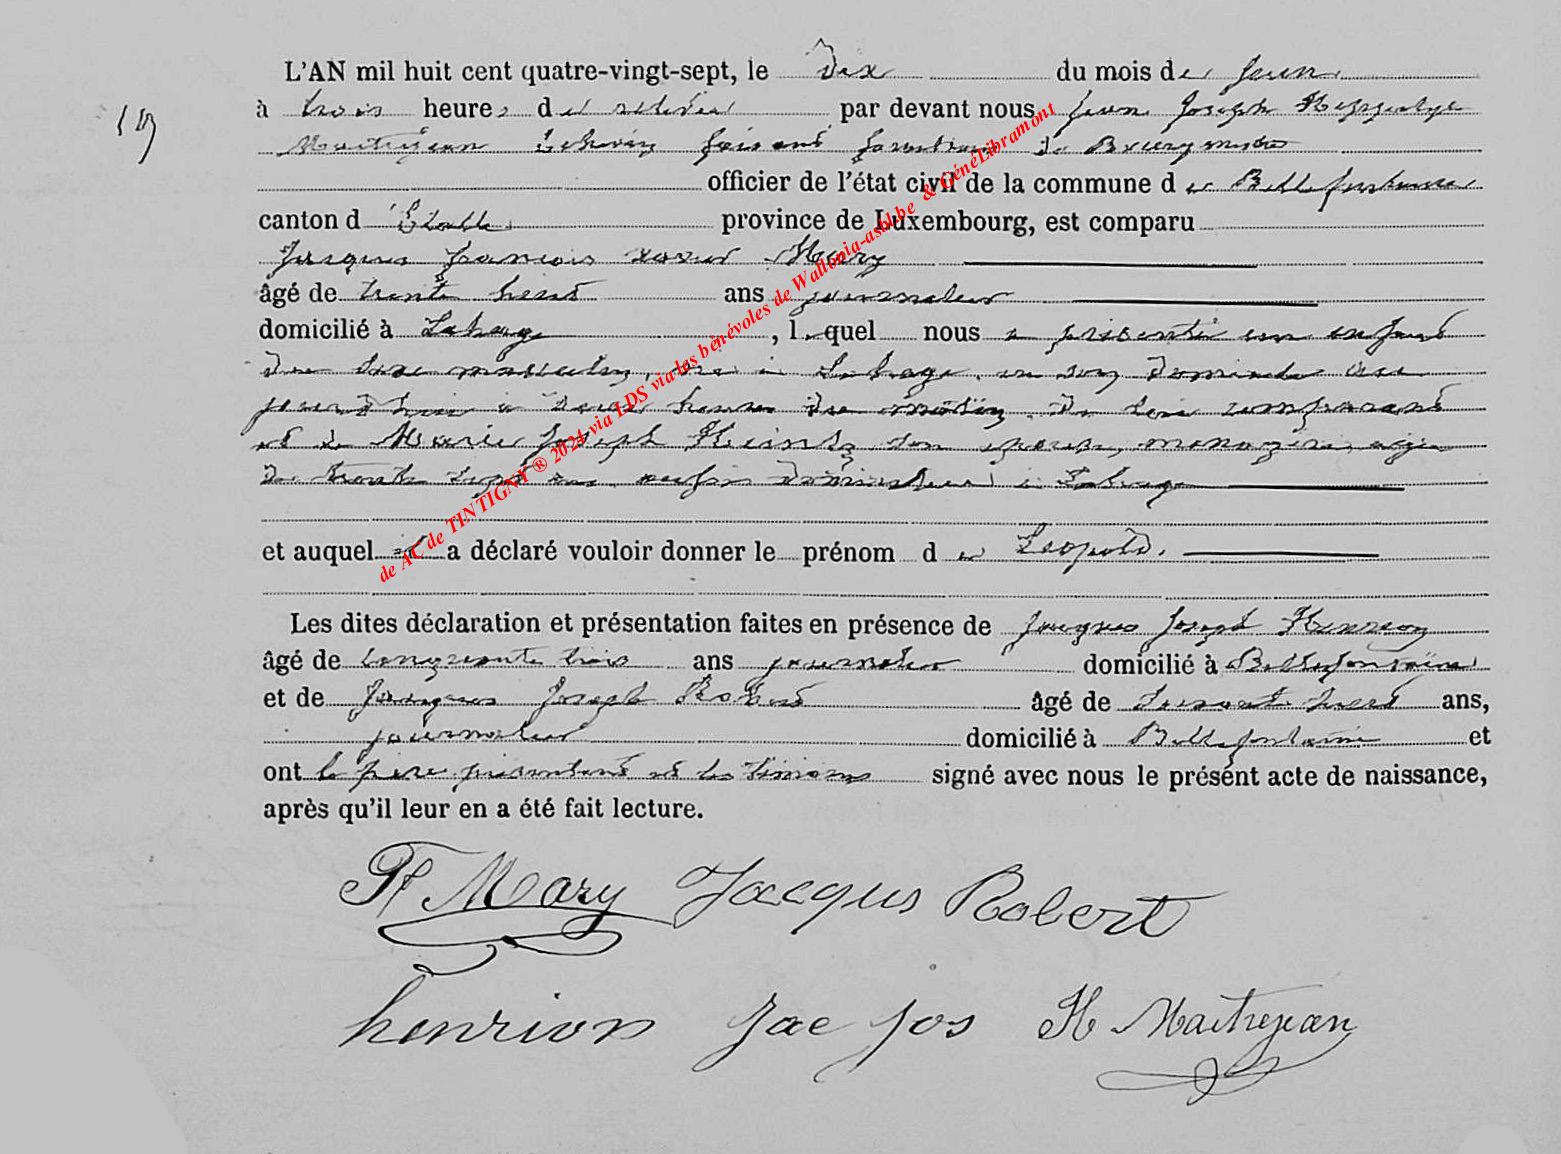 19
L'AN mil huit cent quatre-vingt-sept, le dix du mois de juin
à trois heures de relevée par devant nous Jean Joseph Hippolyte
Maitrejean Echevin faisant fonctions de Bourgmestre
officier de l'état civil de la commune de Bellefontaine
canton d'Etalle province de Luxembourg, est comparu
Jacques françois xavier Mary
âgé de trente huit ans journalier
domicilié à Lahage, lequel nous a présenté un enfant
du sexe masculin, né à Lahage, en son domicile au
jourd'hui à deux heures du matin, de lui comparant
et de Marie Joseph Heintz son épouse, ménagère, agée
de trente sept ans aussi domiciliée à Lahage
et auquel il a déclaré vouloir donner le prénom de Léopold.
Les dites déclaration et présentation faites en présence de Jacques Joseph Henrion
âgé de cinquante trois ans journalier domicilié à Bellefontaine
et de Jacques Joseph Robert âgé de soixante huit ans,
journalier domicilié à Bellefontaine et
ont le père présentant et les témoins signé avec nous le présent acte de naissance,
après qu'il leur en a été fait lecture.
Mary Jacques Robert
henrion Jac jos H Maitrejean
de AC de TINTIGNY ® 2024 via LDS via les bénévoles de Wallonia-asbl.be & GénéLibramont